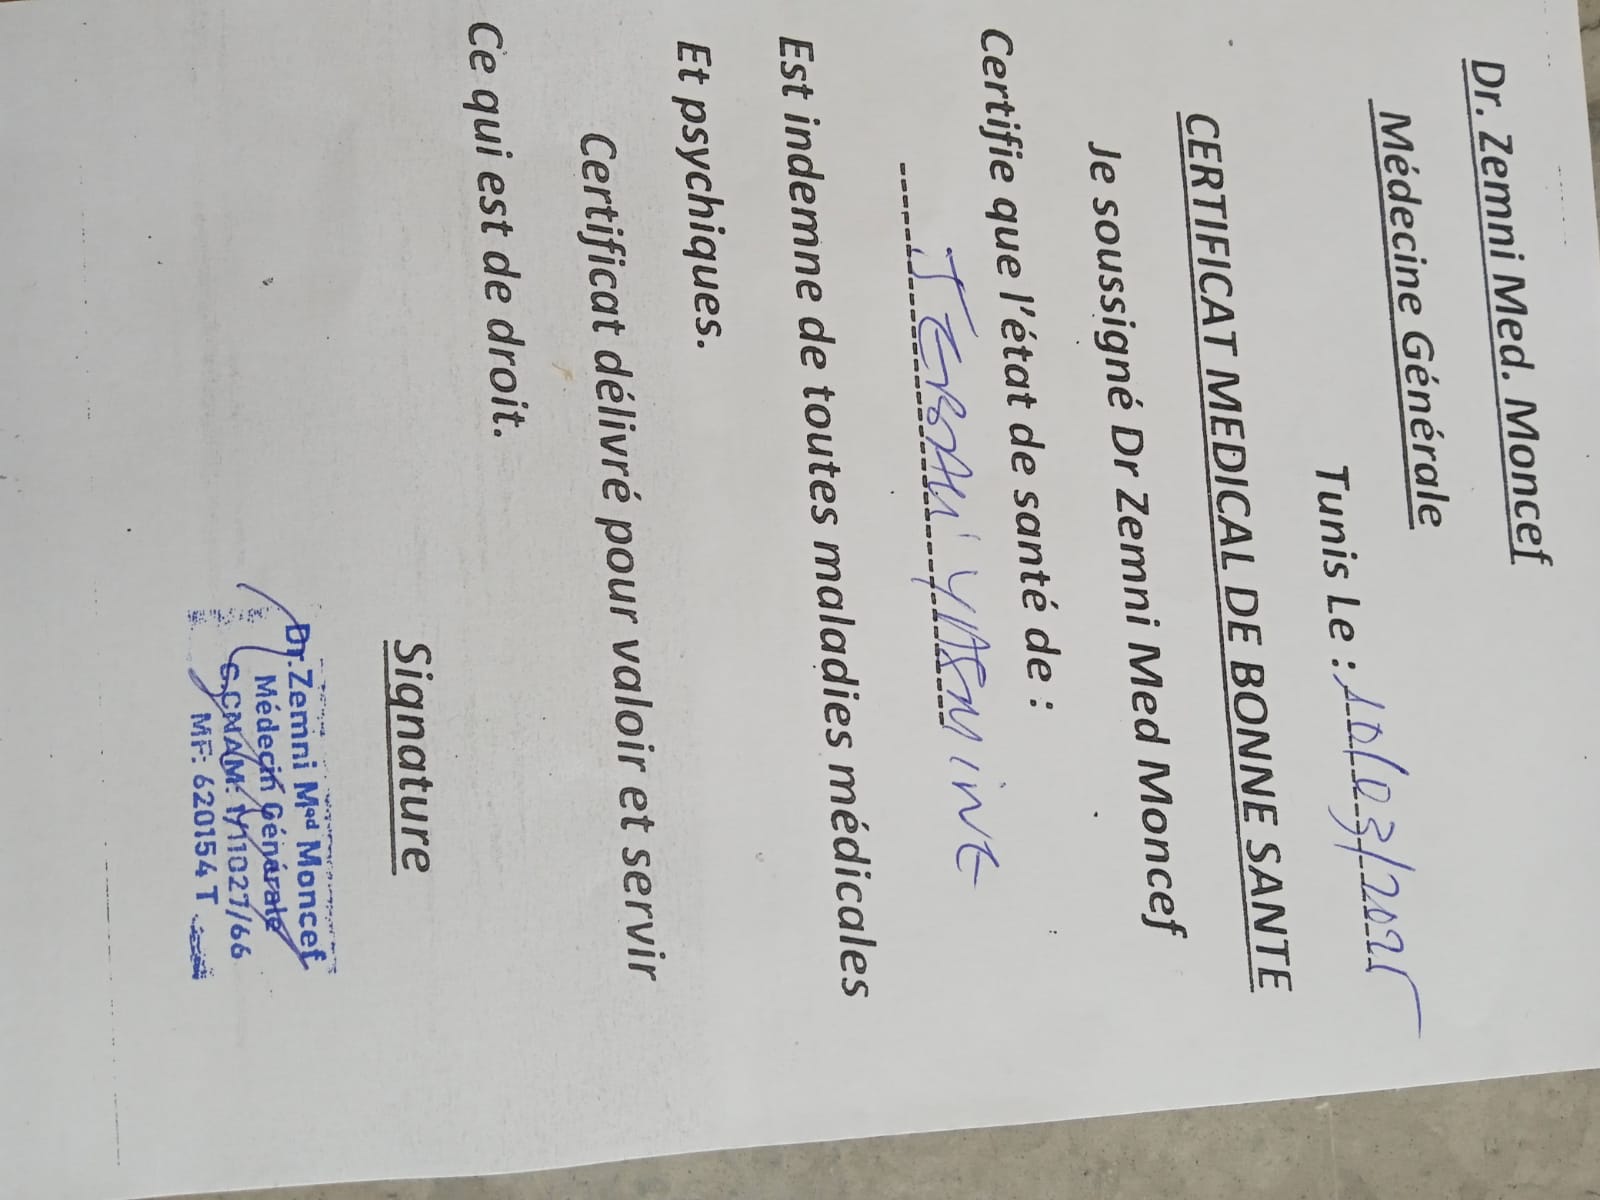 Dr. Zemni Med. Moncef
Médecine Générale
Tunis Le : 10/03/2025
CERTIFICAT MEDICAL DE BONNE SANTE
Je soussigné Dr Zemni Med Moncef
Certifie que l'état de santé de :
JERBALI YASMINE
Est indemne de toutes maladies médicales
Et psychiques.
Certificat délivré pour valoir et servir
Ce qui est de droit.
Signature
Dr.Zemni Med Moncef
Médecin Générale
C.CNAM: 1/11027/66
MF: 620154 T